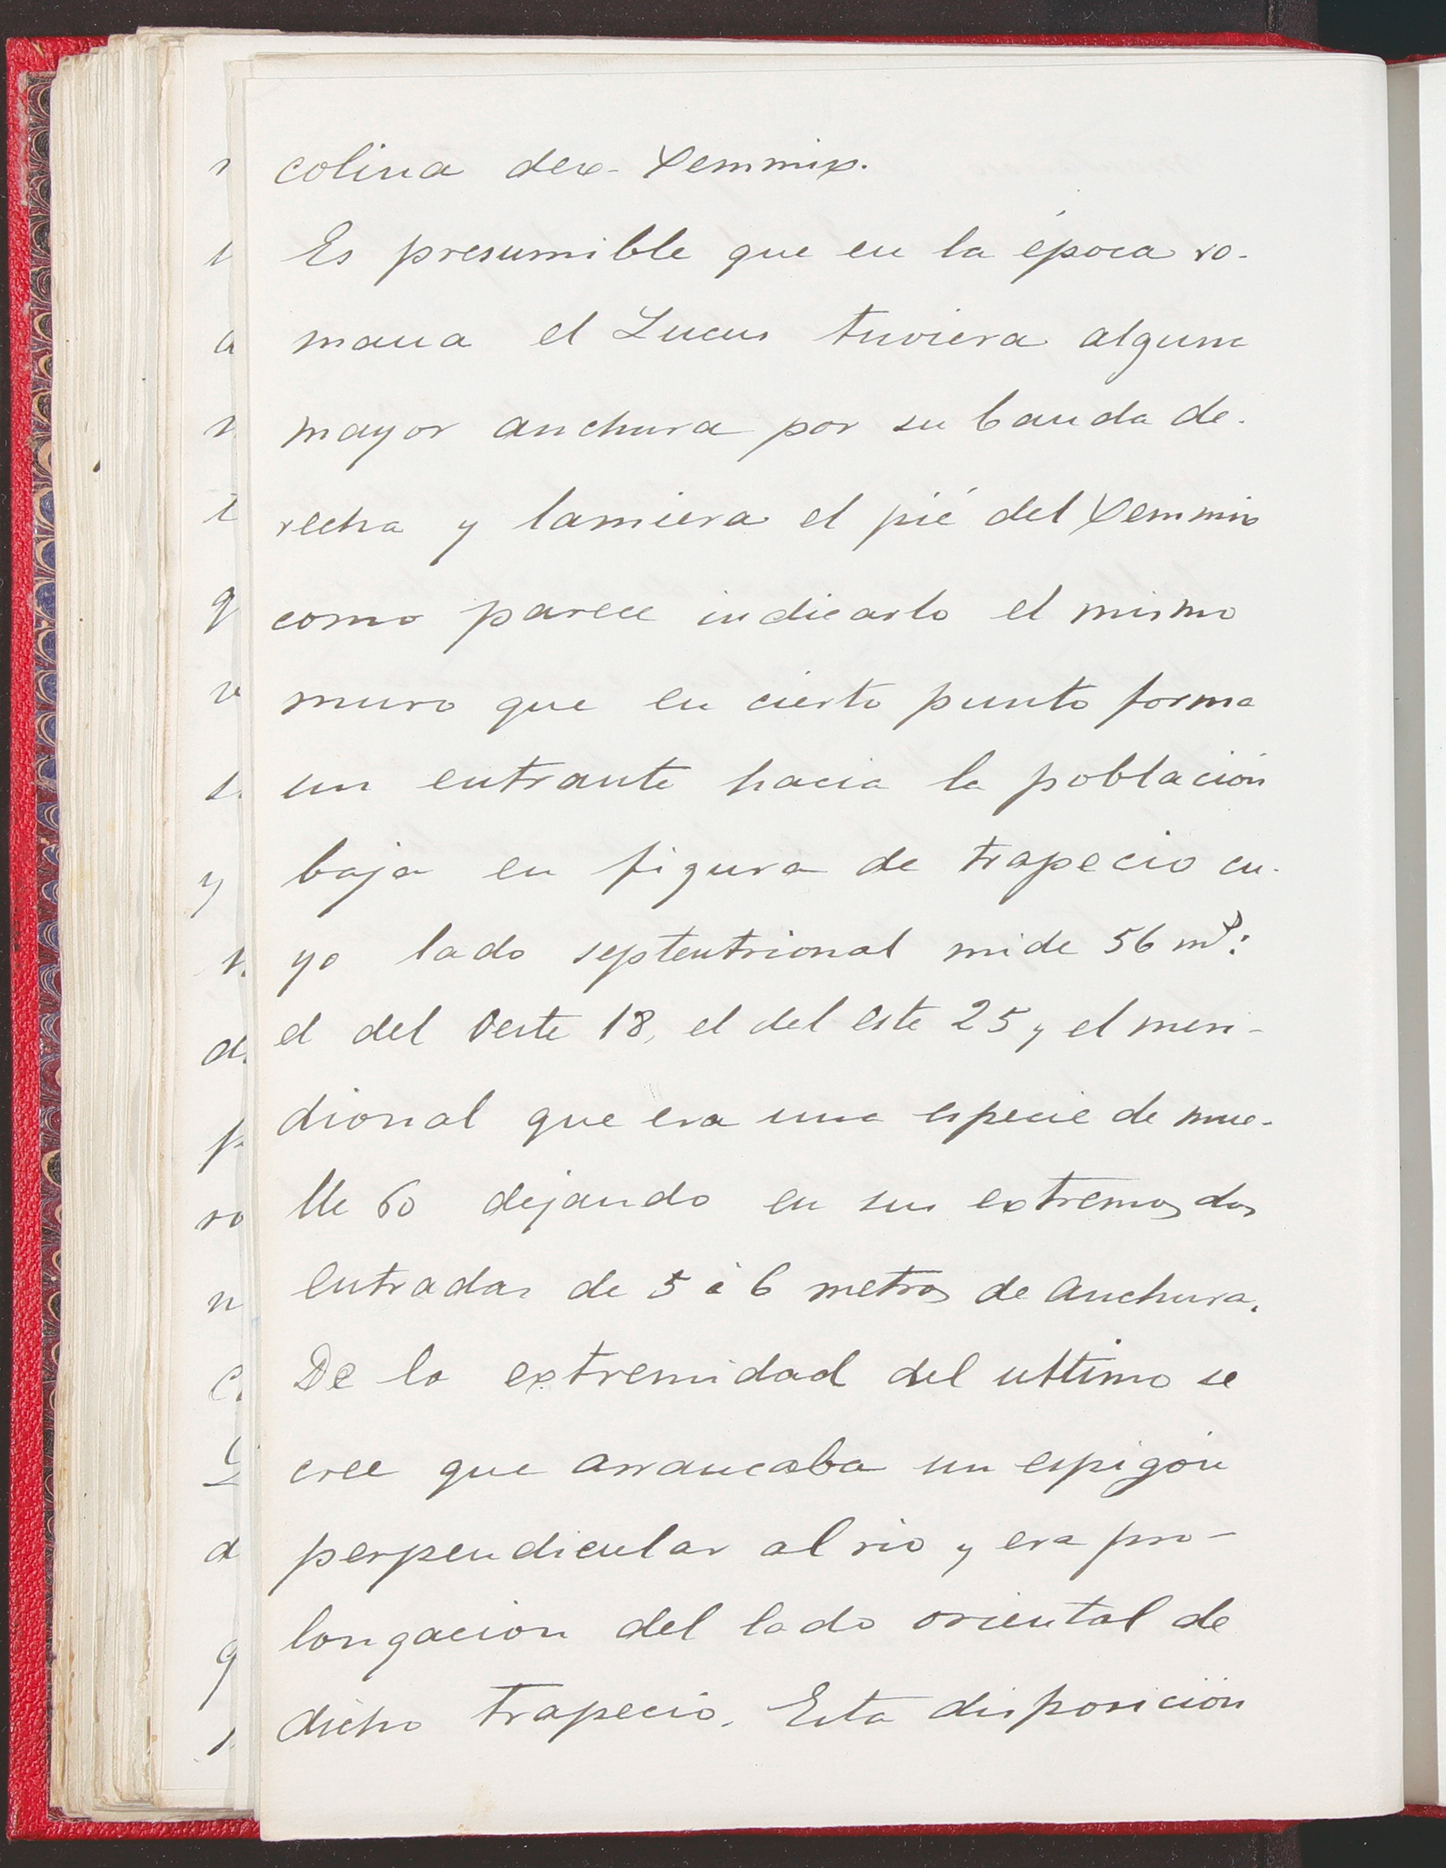 colina dex- Xemmix.
Es presumible que en la época ro-
mana el Lucus tuviera alguna
mayor anchura por su banda de-
recha y lamiera el pié del Xemmix
como parece indicarlo el mismo
muro que en cierto punto forma
un entrante hacia la población
baja en figura de trapecio cu-
yo lado septentrional mide 56 mᵈ:
el del Oeste 18, el del este 25 y el meri-
dional que era una especie de mue-
lle 60 dejando en sus extremos dos
entradas de 5 á 6 metros de anchura.
De la extremidad del ultimo se
cree que arrancaba un espigón
perpendicular al rio y era pro-
longacion del lado oriental de
dicho trapecio. Esta disposición